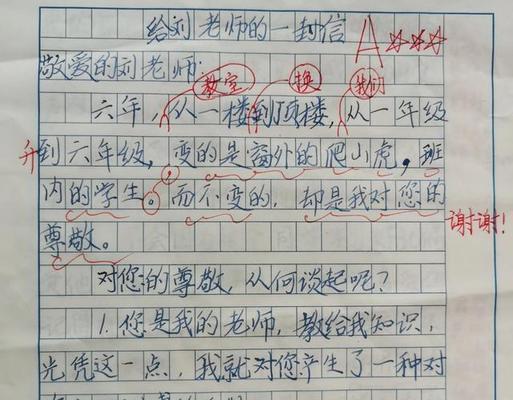 给刘老师的一封信
A
敬爱的刘老师:
教室 换 我们
六年,从一楼到顶楼,从一年级
升
到六年级,变的是窗外的爬山虎,班
内的学生。而不变的,却是我对您的
谢谢!
尊敬。
对您的尊敬,从何谈起呢?
1.您是我的老师,教给我知识,
光凭这一点,我就对您产生了一种对